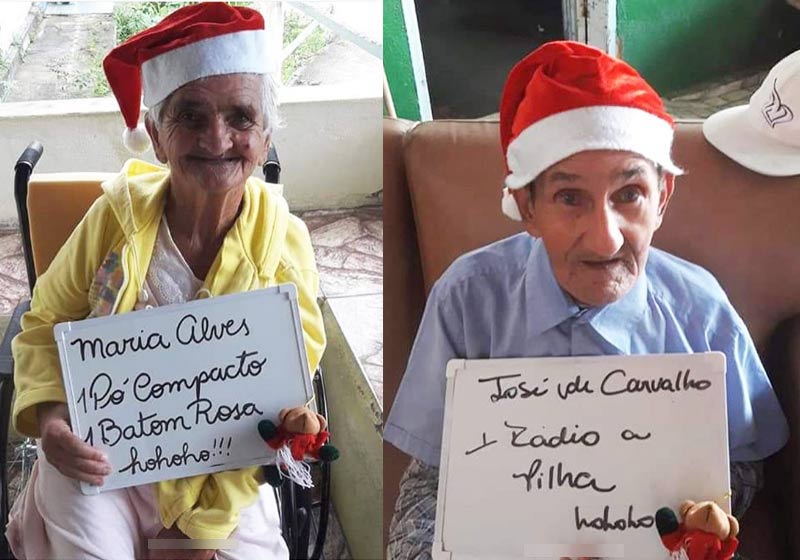 Maria Alves
1 Pó Compacto
1 Batom Rosa
hohoho!!!
José de Carvalho
1 Rádio a
Pilha
hohoho